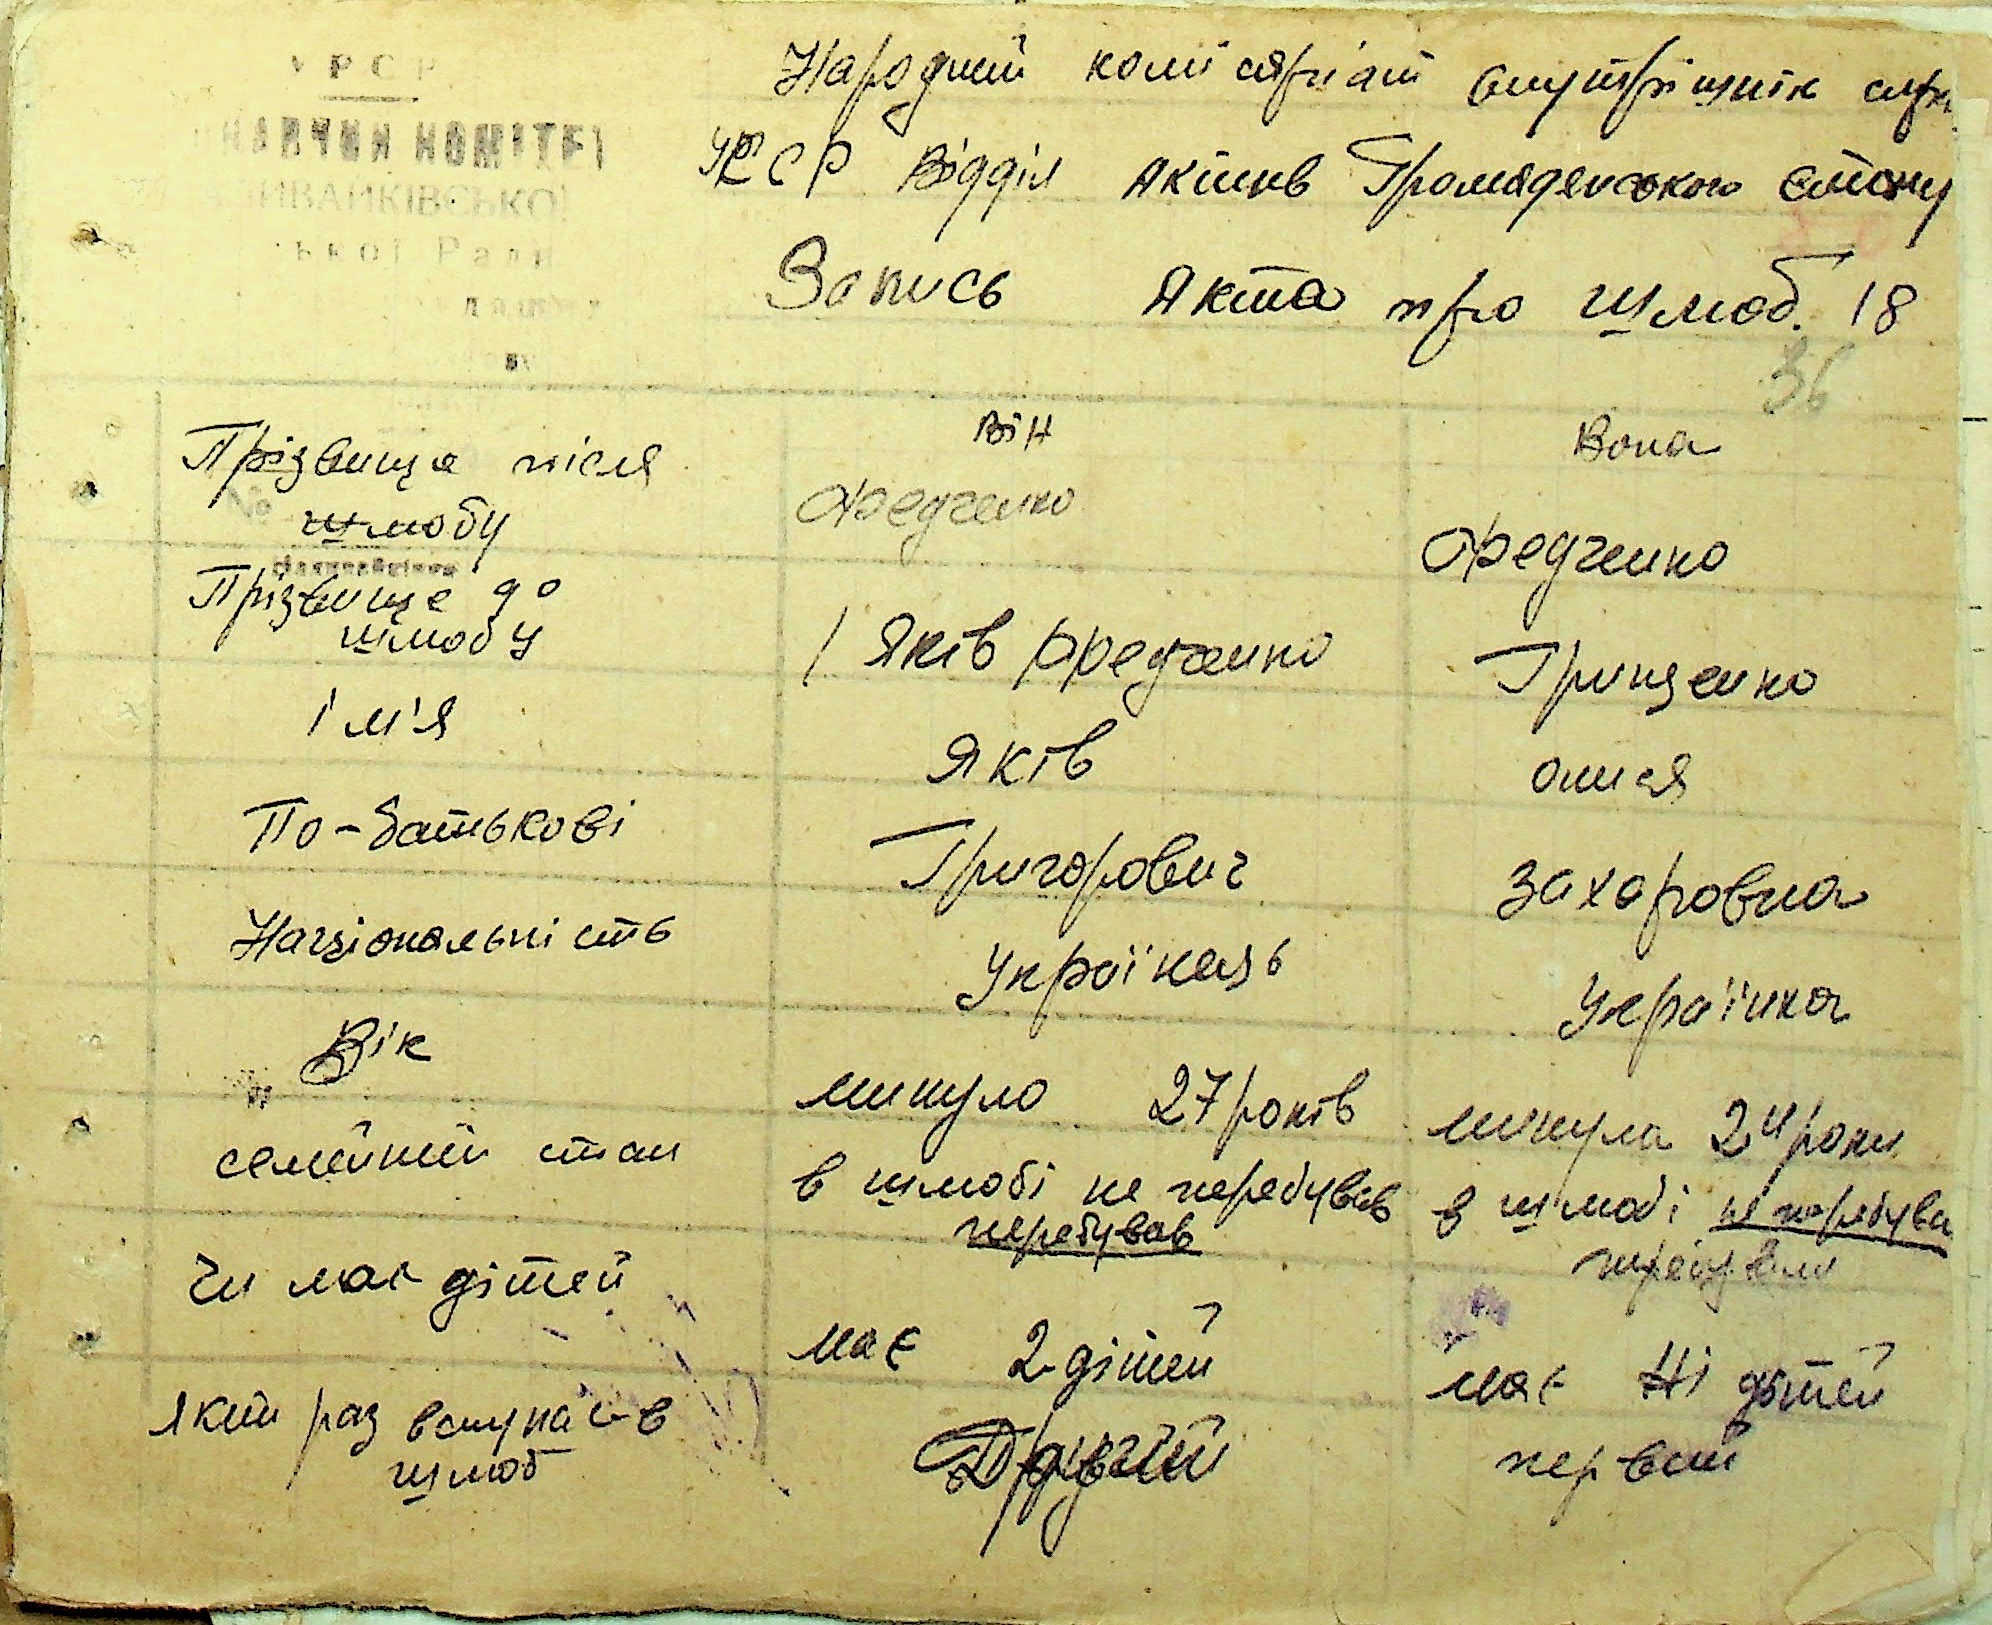 УРСР
ЬКОЇ Ради
Народний комісяріат внутрішнік спр
УРСР Відділ Яктив Громадянського стону
Запись Якта про шлюб. 18
36
Він Вона
Прізвище після
шлюбу Федченко Федченко
Прізвище до
шлюбу Яків Федченко Грищенко
ім'я Яків олися
По-батькові Григорович Захаровна
Національність Українець Українка
Вік минуло 27 років минула 24 роки
семейний стан в шлюбі не перебував в шлюбі не перебува
перебував перебувала
Чи має дітей має 2 дітей має Ні дітей
який раз вступає в
шлюб Другий первий